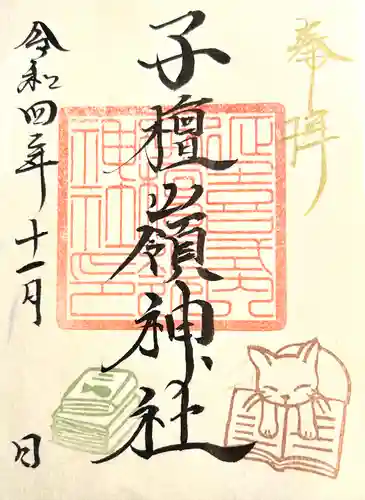 奉拝
子檀嶺神社
令和四年十一月
日